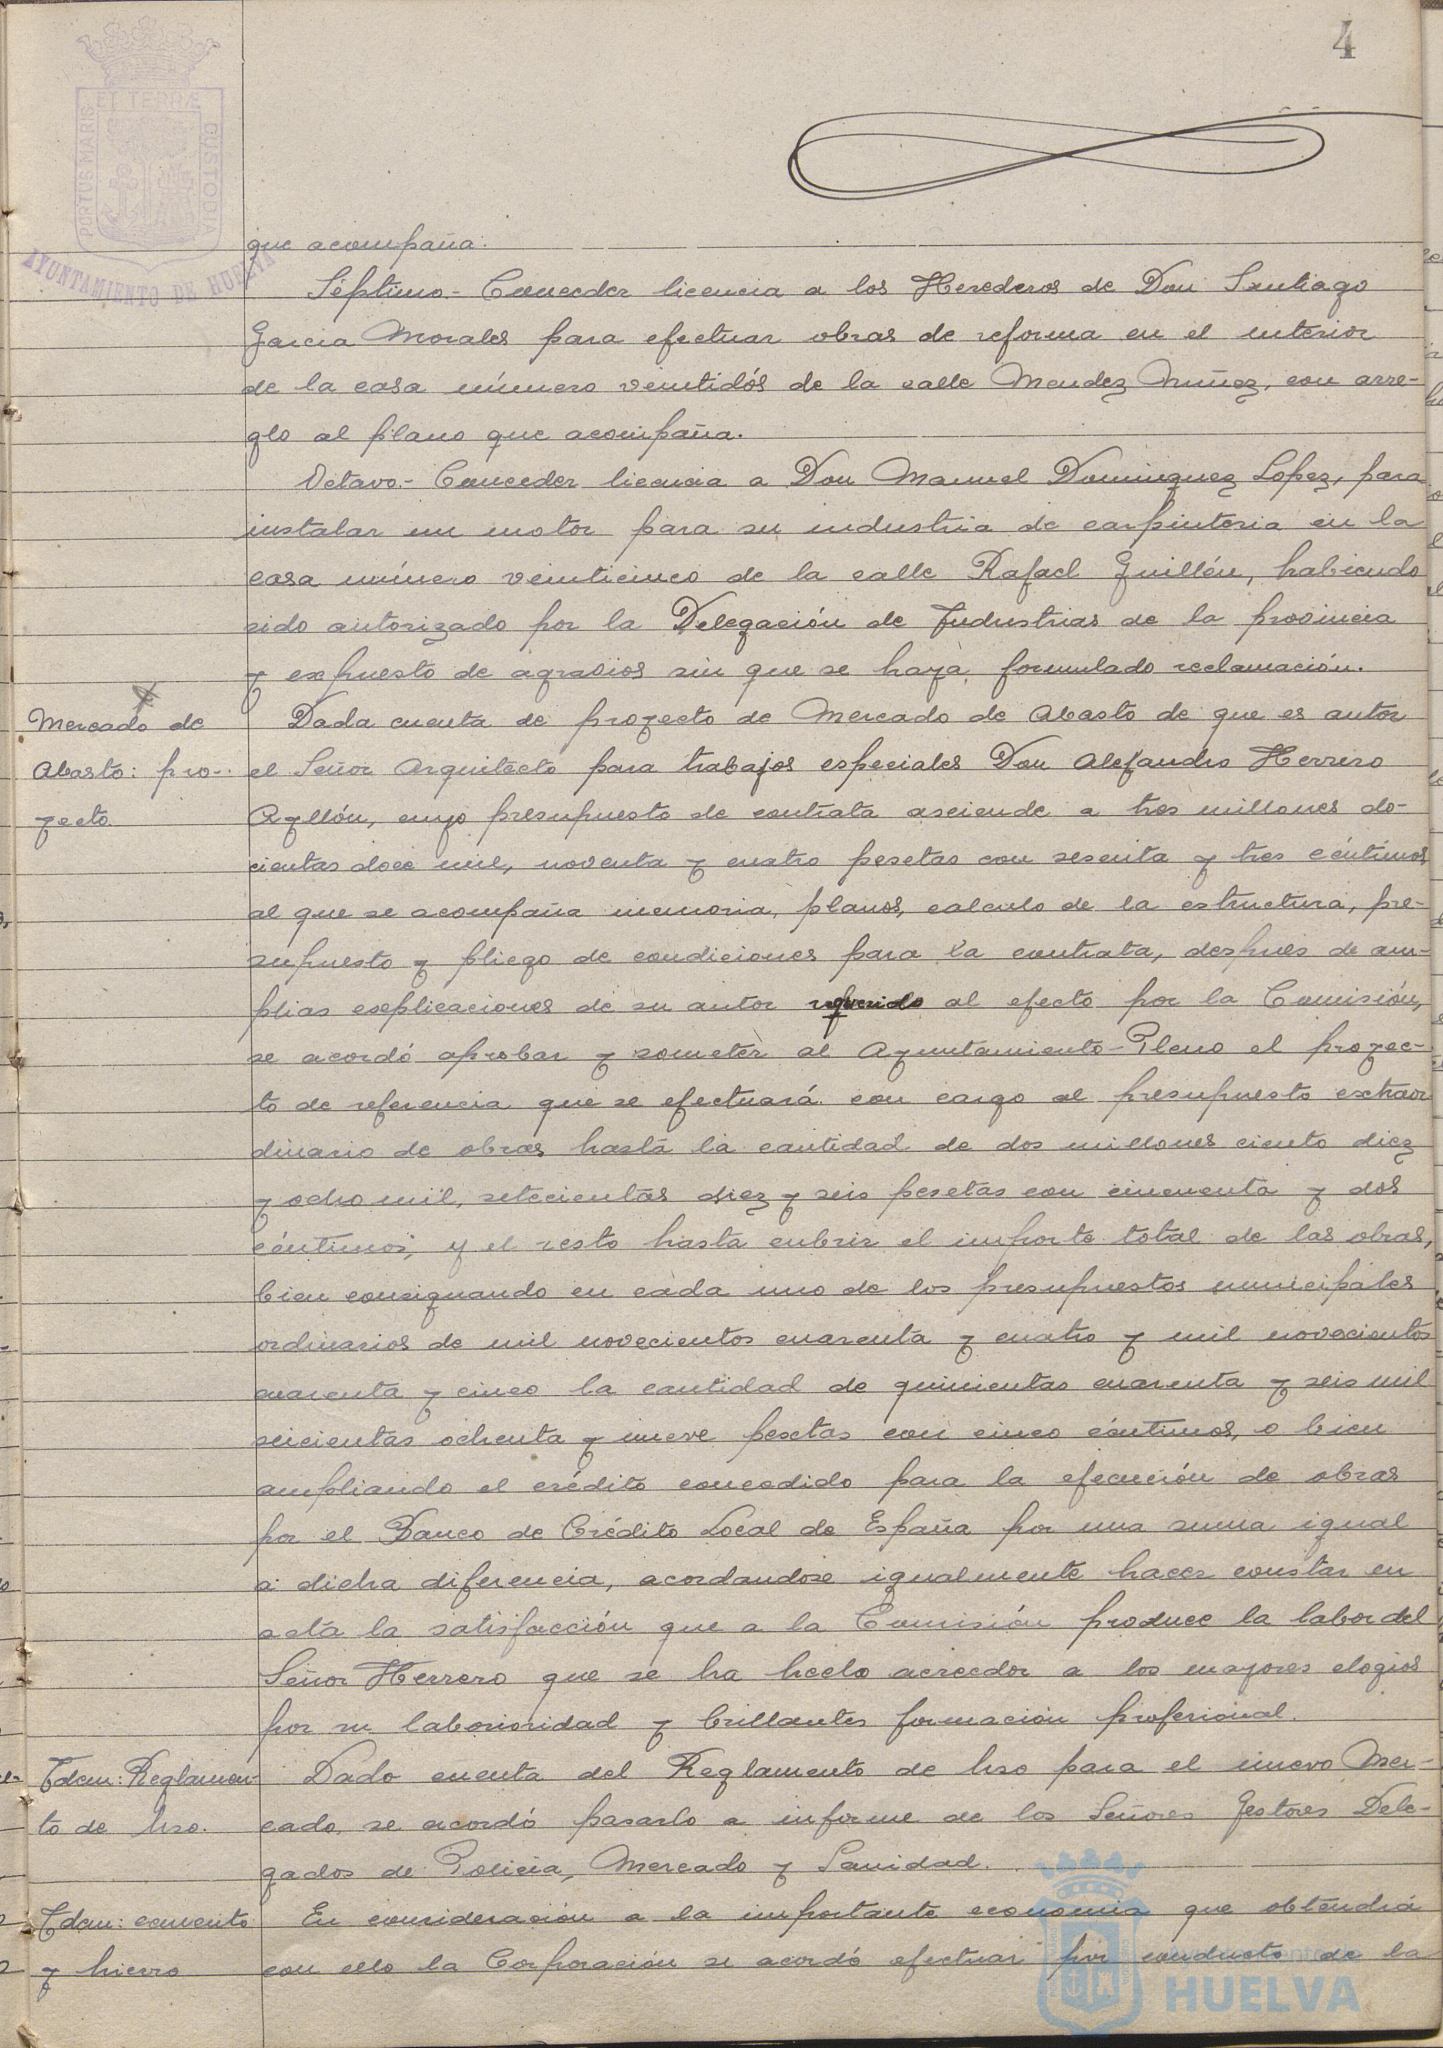 4
PORTUS MARIS ET TERRÆ CUSTODIA
AYUNTAMIENTO DE HUELVA
que acompaña.
Séptimo.- Conceder licencia a los Herederos de Don Santiago
Garcia Morales para efectuar obras de reforma en el interior
de la casa número veintidós de la calle Mendez Nuñez, con arre-
glo al plano que acompaña.
Octavo.- Conceder licencia a Don Manuel Dominguez Lopez, para
instalar un motor para su industria de carpinteria en la
casa número veinticinco de la calle Rafael Guillén, habiendo
sido autorizado por la Delegación de Industrias de la provincia
y expuesto de agravios sin que se haya formulado reclamación.
Mercado de
Abasto: pro-
yecto.
Dada cuenta de proyecto de Mercado de Abasto de que es autor
el Señor Arquitecto para trabajos especiales Don Alejandro Herrero
Ayllón, cuyo presupuesto de contrata asciende a tres millones do-
cientas doce mil, noventa y cuatro pesetas con sesenta y tres céntimos
al que se acompaña memoria, planos, calculo de la estructura, pre-
supuesto y pliego de condiciones para la contrata, despues de am-
plias explicaciones de su autor requerido al efecto por la Comisión,
se acordó aprobar y someter al Ayuntamiento-Pleno el proyec-
to de referencia que se efectuará con cargo al presupuesto extraor
dinario de obras hasta la cantidad de dos millones ciento diez
y ocho mil, setecientas diez y seis pesetas con cincuenta y dos
céntimos, y el resto hasta cubrir el importe total de las obras,
bien consignando en cada uno de los presupuestos municipales
ordinarios de mil novecientos cuarenta y cuatro y mil novecientos
cuarenta y cinco la cantidad de quinientas cuarenta y seis mil
seicientas ochenta y nueve pesetas con cinco céntimos, o bien
ampliando el crédito concedido para la ejecución de obras
por el Banco de Crédito Local de España por una suma igual
a dicha diferencia, acordandose igualmente hacer constar en
acta la satisfacción que a la Comisión produce la labor del
Señor Herrero que se ha hecho acreedor a los mayores elogios
por su laboriosidad y brillantes formación profesional.
Idem: Reglamen-
to de Uso.
Dado cuenta del Reglamento de Uso para el nuevo Mer-
cado, se acordó pasarlo a informe de los Señores Gestores Dele-
gados de Policia, Mercado y Sanidad.
Idem: cemento
y hierro
En consideración a la importante economia que obtendrá
con ello la Corporación se acordó efectuar por conducto de la
HUELVA